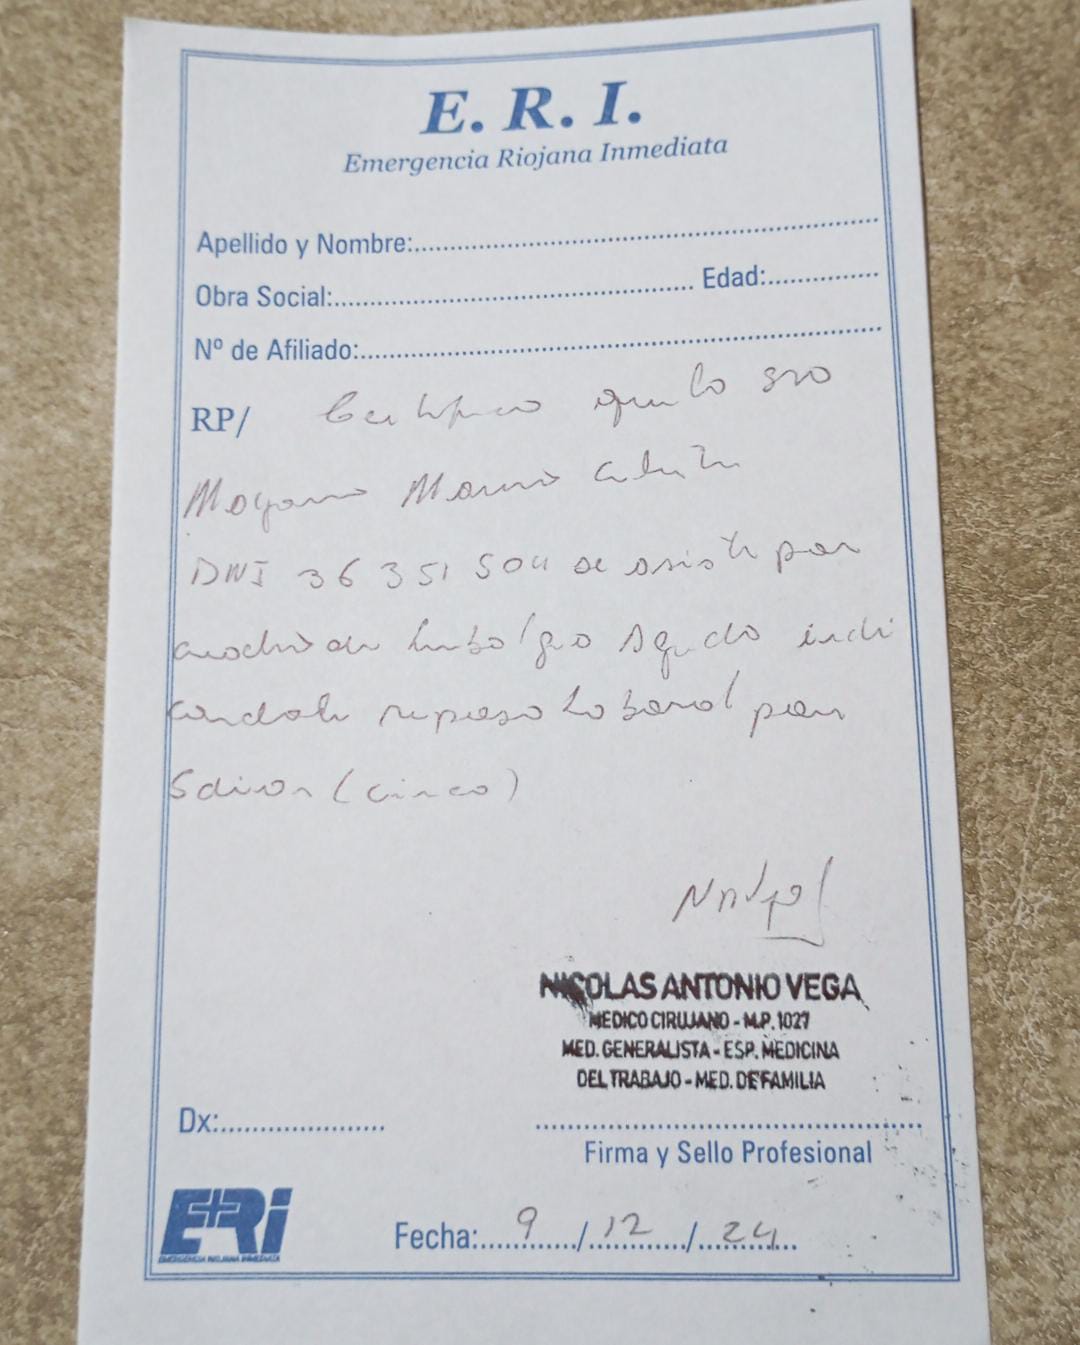 E. R. I.
Emergencia Riojana Inmediata
Apellido y Nombre:
Obra Social: Edad:
Nº de Afiliado:
RP/ Certifico que la sra
Moyano Maria
DNI 36 351 504 se asiste por
cuadro de lumbalgia Aguda indi
candole reposo Laboral por
5 dias (cinco)
NICOLAS ANTONIO VEGA
MEDICO CIRUJANO - M.P. 1027
MED. GENERALISTA - ESP. MEDICINA
DEL TRABAJO - MED. DE FAMILIA
Dx:
Firma y Sello Profesional
E+Ri
EMERGENCIA RIOJANA INMEDIATA
Fecha: 9 / 12 / 24